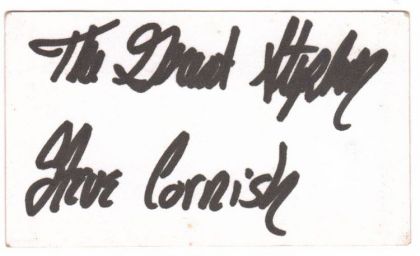 The Great Stephen
Steve Cornish